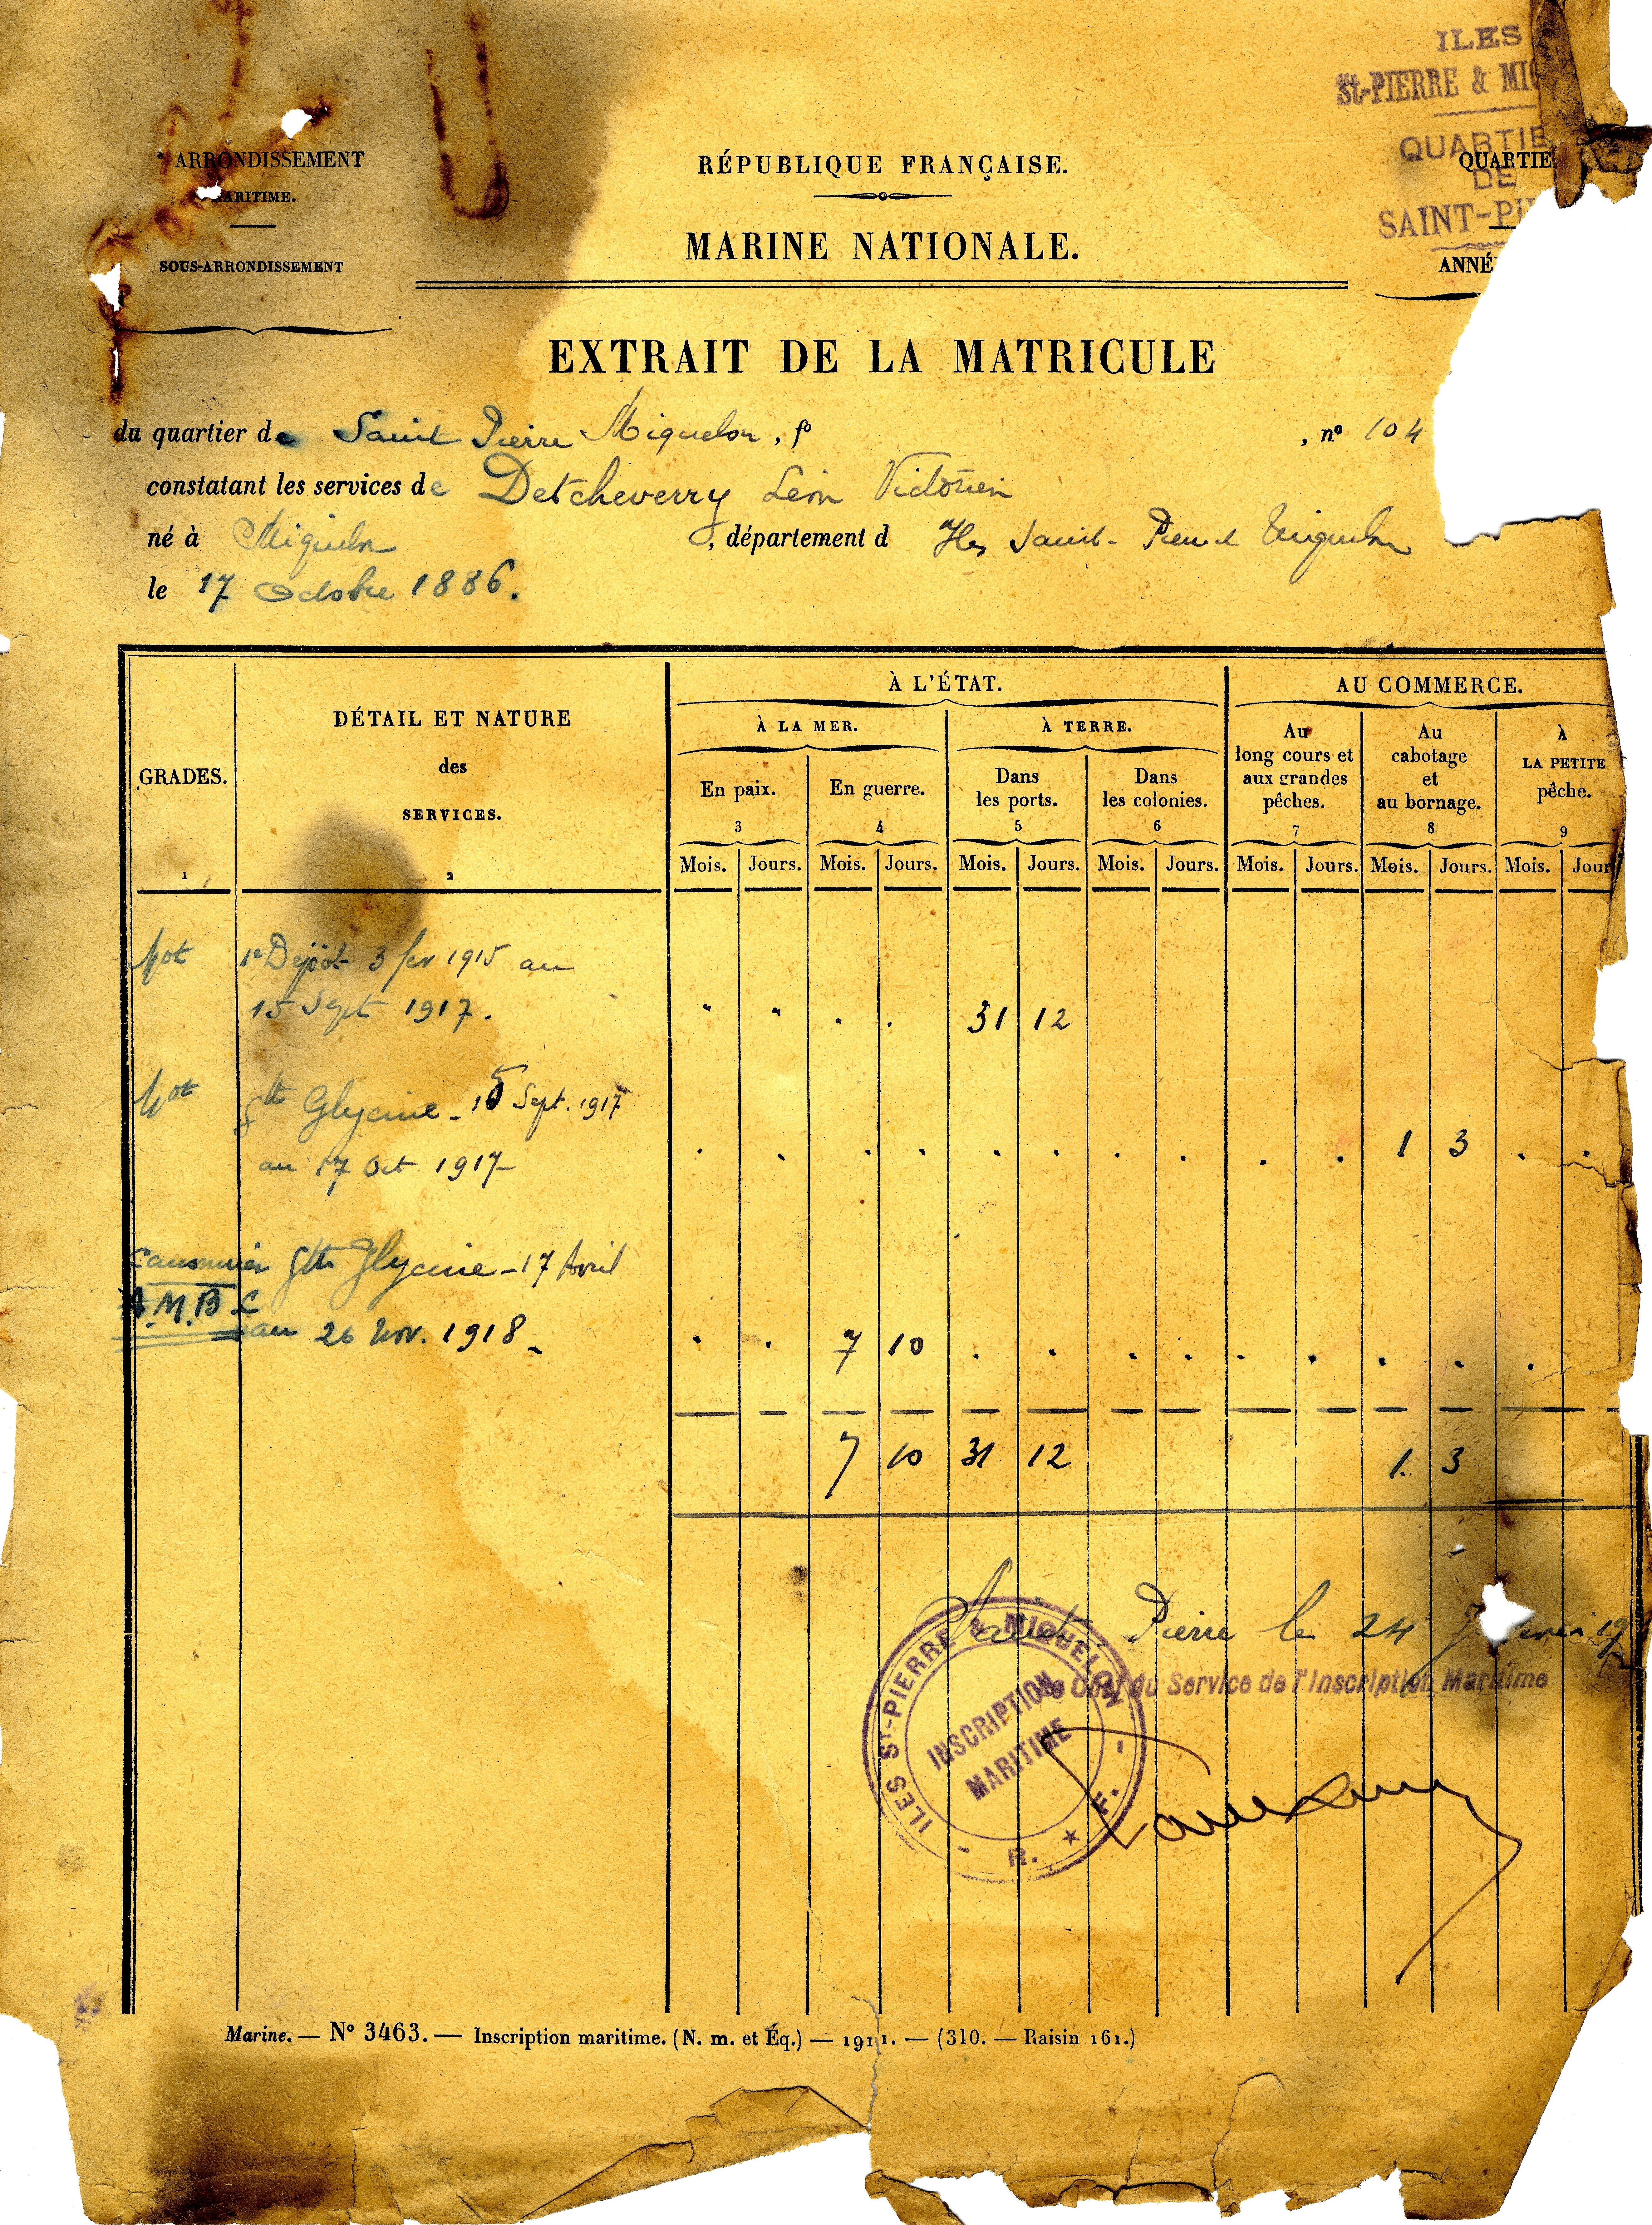 ILES
St-PIERRE & MIQ
QUARTIE
DE
SAINT-PI
ARRONDISSEMENT
MARITIME.
SOUS-ARRONDISSEMENT
RÉPUBLIQUE FRANÇAISE.
MARINE NATIONALE.
QUARTIE
ANNÉ
EXTRAIT DE LA MATRICULE
du quartier de Saint Pierre Miquelon, fo , no 104
constatant les services de Detcheverry Léon Victorien
né à Miquelon , département d Iles Saint-Pierre et Miquelon
le 17 Octobre 1886.
GRADES.
1
DÉTAIL ET NATURE
des
SERVICES.
2
À L'ÉTAT.
À LA MER.
À TERRE.
En paix.
3
En guerre.
4
Dans
les ports.
5
Dans
les colonies.
6
AU COMMERCE.
Au
long cours et
aux grandes
pêches.
7
Au
cabotage
et
au bornage.
8
À
LA PETITE
pêche.
9
Mois. Jours. Mois. Jours. Mois. Jours. Mois. Jours. Mois. Jours. Mois. Jours. Mois. Jour
Mot 1er Dépôt 3 fev 1915 au
15 Sept 1917. " " . . 31 12
Mot Gtte Glycine - 15 Sept. 1917
au 17 Oct 1917 - . . . . . . . . . . 1 3 . .
Canonnier Gtte Glycine - 17 Avril
A.M.B.C
au 26 Nov. 1918 - . . 7 10 . . . . . . . . .
7 10 31 12 1. 3
Saint-Pierre le 24 19
Le Chef du Service de l'Inscription Maritime
ILES St-PIERRE & MIQUELON
INSCRIPTION
MARITIME
- R. ★ F. -
Marine. — No 3463. — Inscription maritime. (N. m. et Éq.) — 1911. — (310. — Raisin 161.)